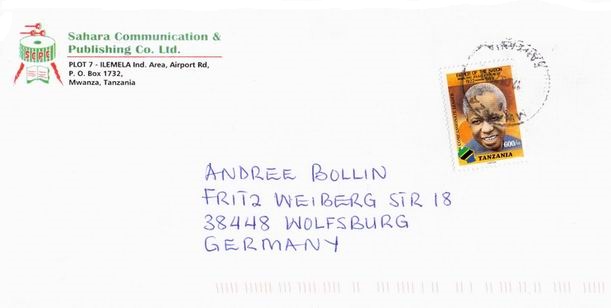 Sahara Communication &
Publishing Co. Ltd.
PLOT 7 - ILEMELA Ind. Area, Airport Rd,
P. O. Box 1732,
Mwanza, Tanzania
600/=
TANZANIA
ANDREE BOLLIN
FRITZ WEIBERG STR 18
38448 WOLFSBURG
GERMANY